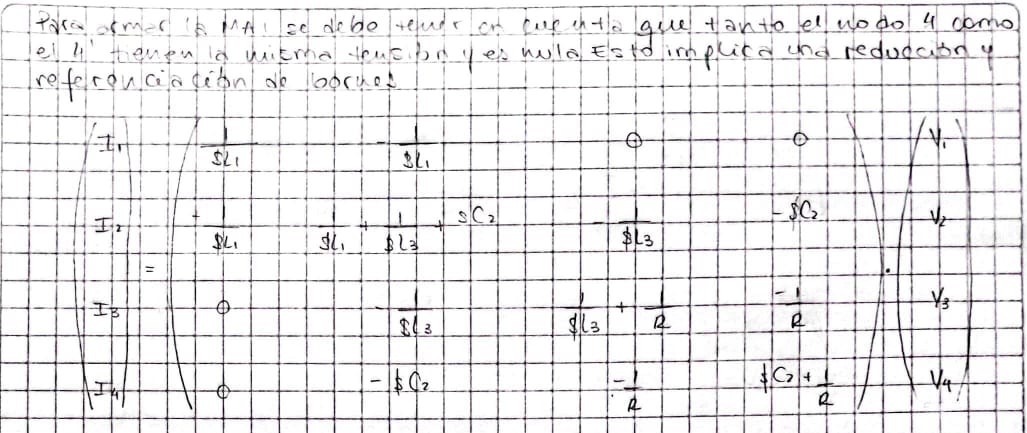 Para armar la MAI se debe tener en cuenta que tanto el nodo 4 como
el 4' tienen la misma tension y es nula Esto implica una reducción y
referenciación de bornes
I1 = 1/$L1 -1/$L1 0 0 V1
I2 -1/$L1 1/$L1 + 1/$L3 + $C2 -1/$L3 -$C2 . V2
I3 0 -1/$L3 1/$L3 + 1/R -1/R V3
I4 0 -$C2 -1/R $C2 + 1/R V4